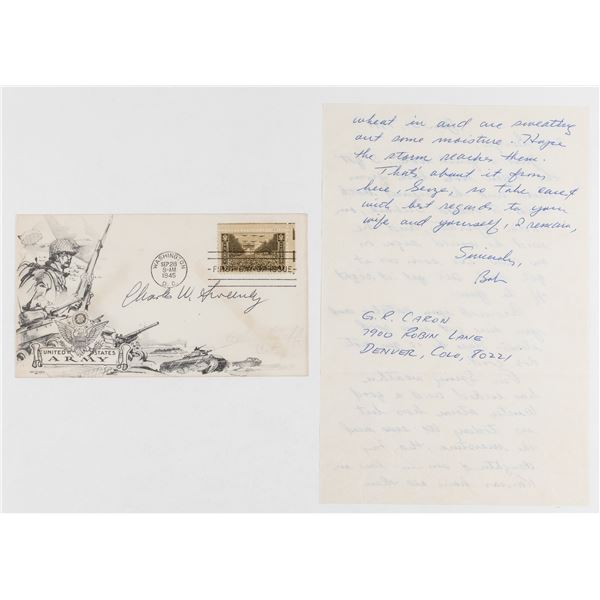 WASHINGTON
SEP 28
9-AM
1945
D.C.
FIRST DAY OF ISSUE
Charles W. Sweeney
UNITED STATES
ARMY
wheat in and are sweating
out some moisture. Hope
the storm reaches them.
That's about it from
here, Serge, so take care &
with best regards to your
wife and yourself, I remain,
Sincerely,
Bob
G. R. CARON
7900 ROBIN LANE
DENVER, COLO, 80221